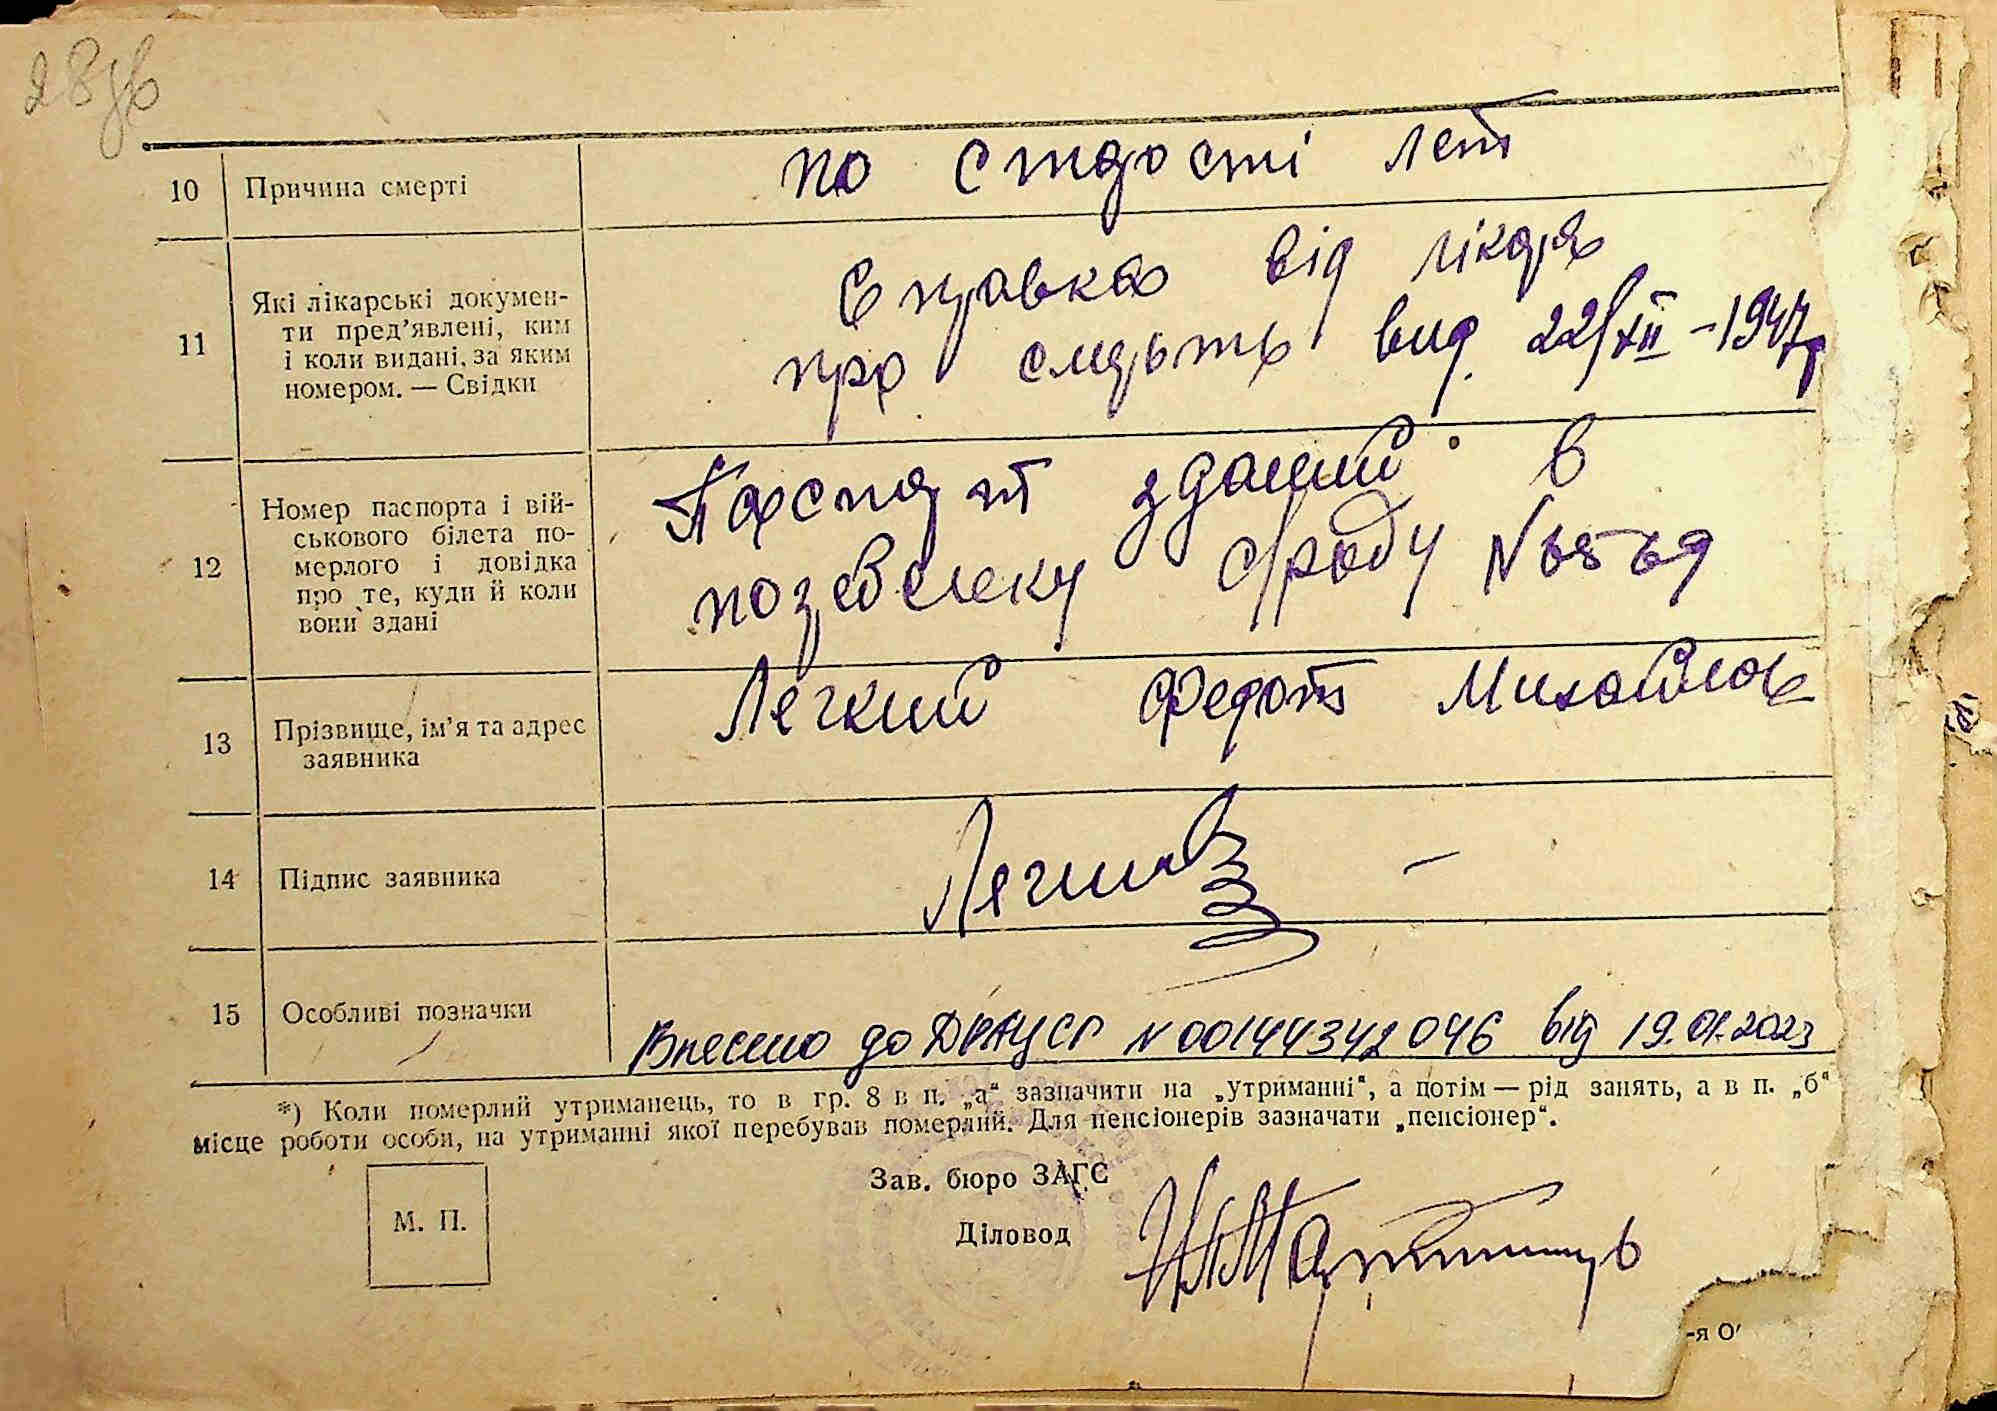 28 зв
10 Причина смерті по старості лет
11 Які лікарські докумен-
ти пред’явлені, ким
і коли видані, за яким
номером. — Свідки
Справка від лікаря
про смерть вид. 22/XII – 1947р
12 Номер паспорта і вій-
ськового білета по-
мерлого і довідка
про те, куди й коли
вони здані
Паспорт зданий в
с/раду №
13 Прізвище, ім’я та адрес
заявника
Легкий Федот Михайлов
14 Підпис заявника
–
15 Особливі позначки
Внесено до ДРАЦСГ N 00144342046 від 19.01.2023
*) Коли померлий утриманець, то в гр. 8 в п. „а“ зазначити на „утриманні“, а потім — рід занять, а в п. „б“
місце роботи особи, на утриманні якої перебував померлий. Для пенсіонерів зазначати „пенсіонер“.
Зав. бюро ЗАГС
М. П.
Діловод
-я О